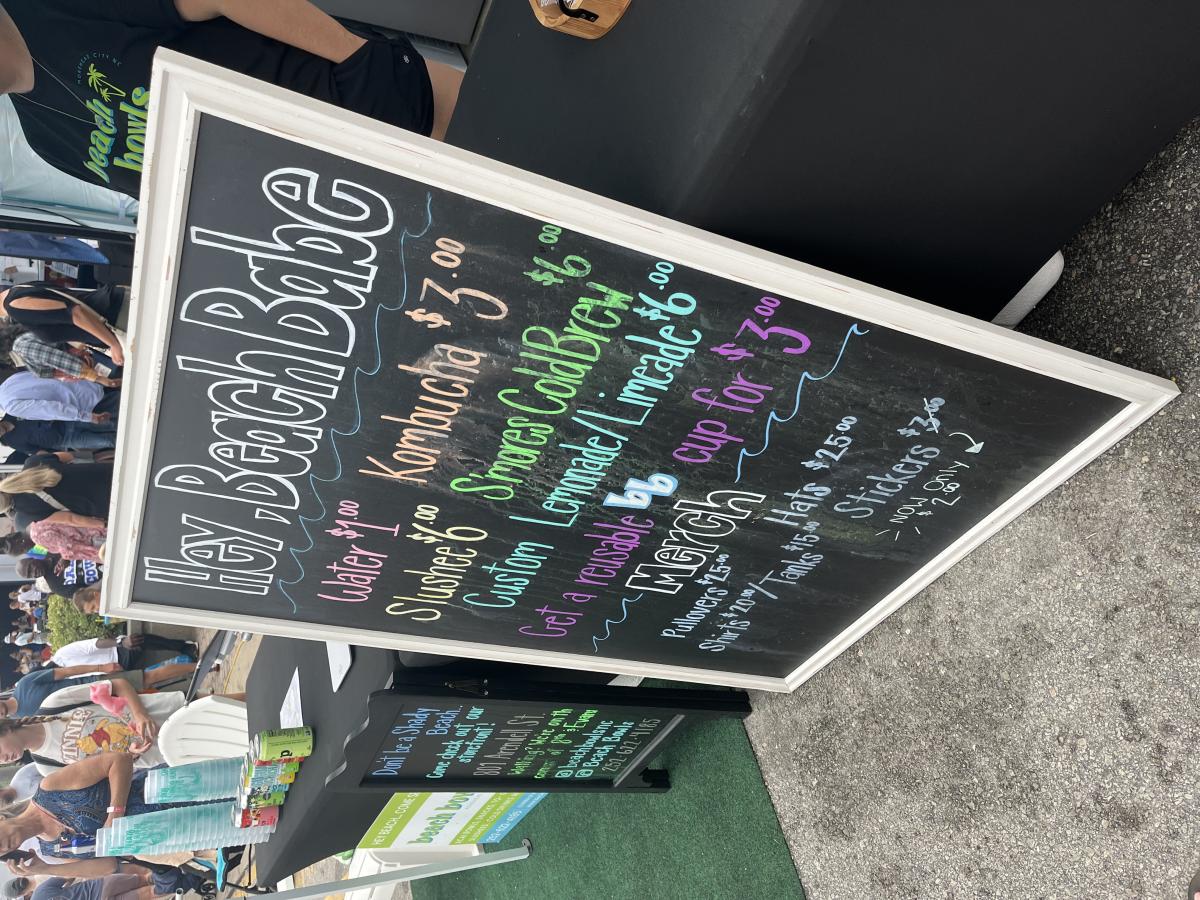 Hey, Beach Babe
Water $1.00
Kombucha $3.00
Slushee $6.00
S'mores Cold Brew $6.00
Custom Lemonade/Limeade $6.00
Get a reusable bb cup for $3.00
Merch
Pullovers $25.00
Hats $25.00
Shirts $20.00/Tanks $15.00
Stickers $3.00
NOW Only
$2.00
MOREHEAD CITY NC
beach
bowls
Don't be a Shady
Beach..
Come check out our
storefront!
802 Arendell St.
@beachbowlsnc
Beach Bowls
HEY BEACH, COME S
beach bow